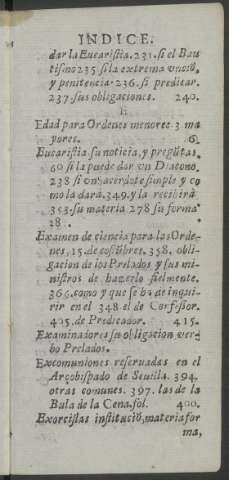 INDICE.
dar la Eucaristia. 231. si el Bau
tismo 235 si la extrema uncio,
y penitencia 236. si predicar.
237. sus obligaciones. 240.
E
Edad para Ordenes menores 3 ma
yores. 6
Eucaristia su noticia, y pregũtas.
60 si la puede dar un Diacono.
238 si un sacerdote simple y co
mo la dará. 349. y la recibirá
353. su materia 278 su forma
28 .
Examen de ciencia para las Orde-
nes, 15. de costũbres. 358. obli-
gacion de los Prelados y sus mi-
nistros de hazerlo fielmente.
366. como y que se ha de inqui-
rir en el 348 el de Confessor.
405. de Predicador. 415.
Examinadores su obligacion ver-
bo Prelados.
Excomuniones reseruadas en el
Arçobispado de Seuilla. 394.
otras comunes. 397. las de la
Bula de la Cena, fol. 400.
Exorcistas institució, materia for
ma,